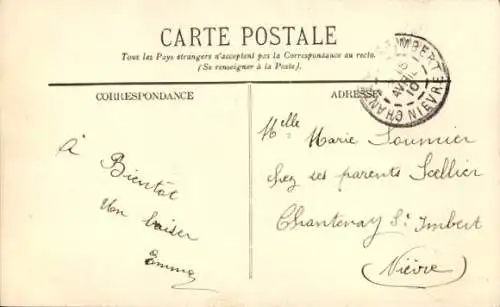 CARTE POSTALE
Tous les Pays étrangers n'acceptent pas la Correspondance au recto.
(Se renseigner à la Poste).
CORRESPONDANCE
ADRESSE
CHANTENAY-ST-IMBERT
AVRIL
10
NIÈVRE
À Bientôt
Un baiser
Emma
Melle Marie Soumier
chez ses parents Scellier
Chantenay St Imbert
(Nièvre)